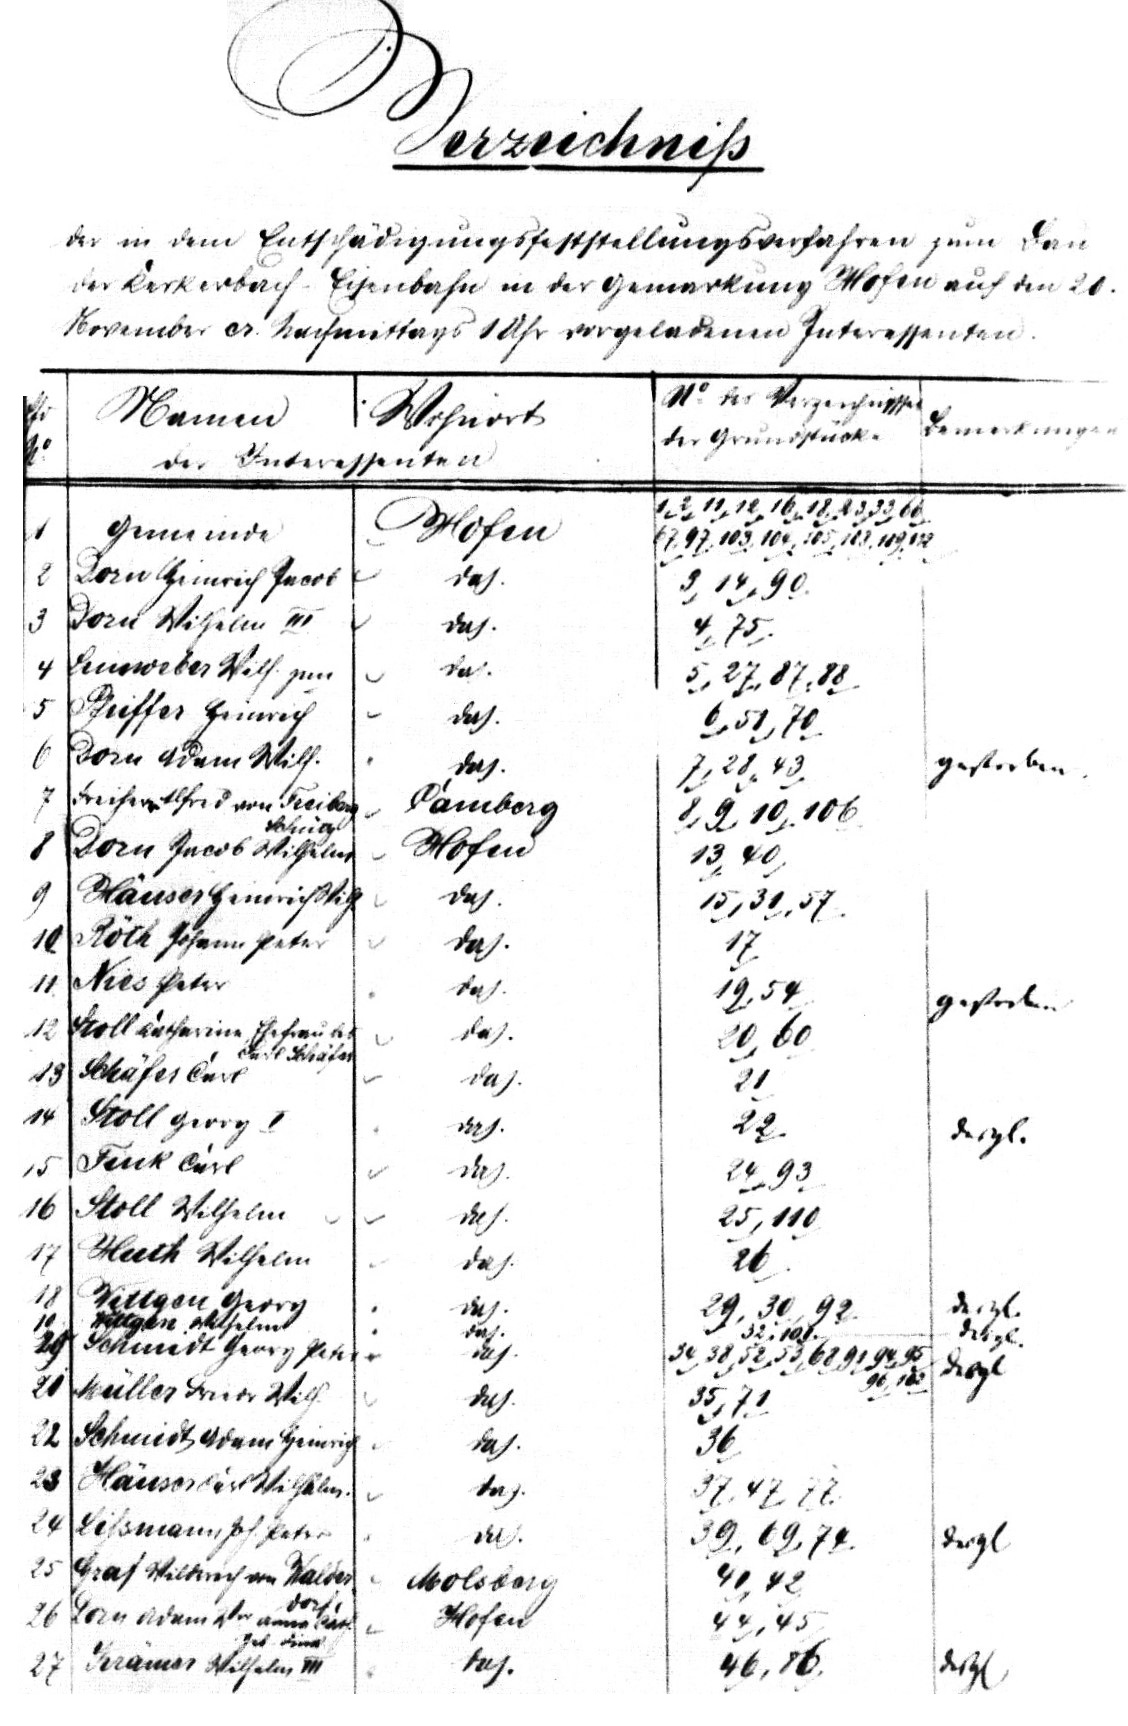 Verzeichniß
der in dem Entschädigungsfeststellungsverfahren zum Bau
der Kerkerbach-Eisenbahn in der Gemarkung Hofen auf den 20.
November cr. Nachmittags 1 Uhr vorgeladenen Interessenten.
Lfd Namen Wohnort No. des Verzeichnisses Bemerkungen
No. der Interessenten der Grundstücke
1, 2, 11, 12, 16, 18, 23, 33, 66
1 Gemeinde Hofen 67, 97, 103, 104, 105, 109, 112
2 Dorn Heinrich Jacob das. 3, 14, 90.
3 Dorn Wilhelm III das. 4, 75.
4 Leinweber Wilh. das. 5, 27, 87, 88
5 Pfeiffer Heinrich das. 6, 51, 70
6 Dorn Adam Wilh. das. 7, 28, 43 gestorben.
7 Freiherr Alfred von Freiberg Bamberg 8, 9, 10, 106
8 Dorn Jacob Wilhelm Hofen 13, 40,
9 Häuser Heinrich Wilh das. 15, 31, 57.
10 Röth Johann Peter das. 17
11 Nies Peter das. 19, 54 gestorben
12 Stoll Catharine Ehefrau des das. 20, 60
Carl Schäfer
13 Schäfer Carl das. 21
14 Stoll Georg I das. 22 desgl.
15 Fink Carl das. 24, 93
16 Stoll Wilhelm das. 25, 110
17 Huth Wilhelm das. 26
18 Wittgen Georg das. 29, 30, 92 desgl.
19 Wittgen Wilhelm das. 32, 101. desgl.
20 Schmidt Georg Peter das. 34, 38, 52, 53, 68, 91, 94, 95 desgl
96, 102
21 Müller Wilh. das. 35, 71
22 Schmidt Adam Heinrich das. 36
23 Häuser Carl Wilhelm. das. 37, 47, 77.
24 Lißmann Joh. Peter das. 39, 69, 74. desgl
25 Graf Wilderich von Walder Molsberg 41, 42
dorf
26 Dorn Adam Wwe Anna Hofen 44, 45
geb.
27 Krämer Wilhelm III das. 46, 86. desgl